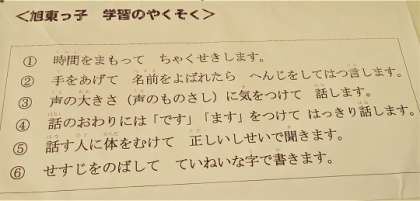 ＜旭東っ子　学習のやくそく＞
① 時間をまもって　ちゃくせきします。
② 手をあげて　名前をよばれたら　へんじをしてはつ言します。
③ 声の大きさ（声のものさし）に気をつけて　話します。
④ 話のおわりには「です」「ます」をつけて はっきり話します。
⑤ 話す人に体をむけて　正しいしせいで聞きます。
⑥ せすじをのばして　ていねいな字で書きます。